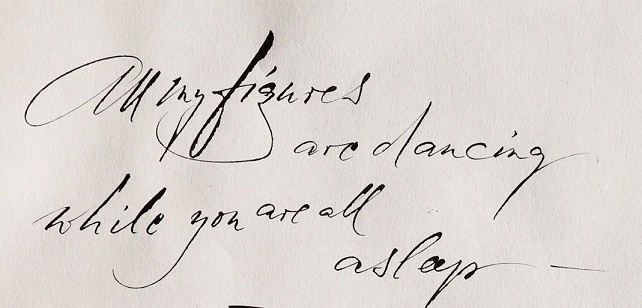 All my figures
are dancing
while you are all
asleep —